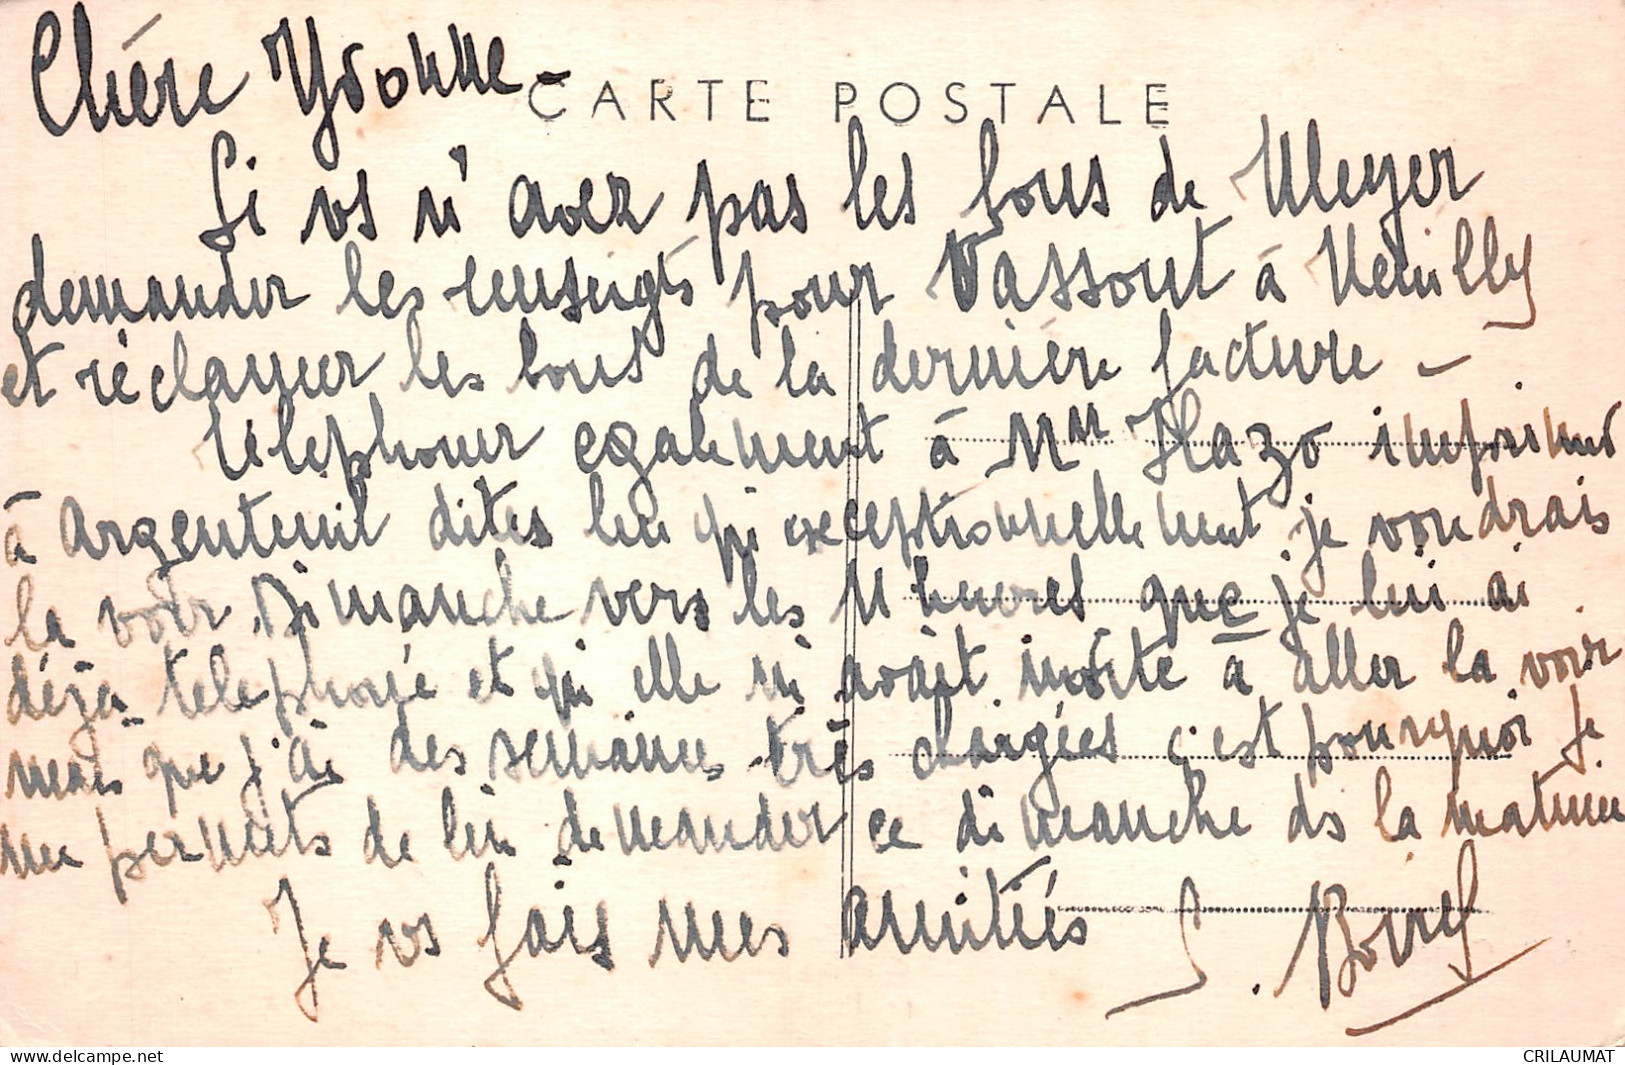 Chère Yvonne -
CARTE POSTALE
Si vs n'avez pas les bons de Meyer
demander les renseigts pour Vassout à Neuilly
et réclamer les bons de la dernière facture -
téléphoner egalement à Mm Hazo imprimeur
à Argenteuil dites lui qu exceptionnellement je voudrais
la voir Dimanche vers les 11 heures que je lui ai
déjà telephoné et qu elle m'avait invité à aller la voir
mais que j'ai des semaines très chargées c'est pourquoi je
me permets de lui demander ce dimanche ds la matinée
Je vs fais mes amitiés S.
www.delcampe.net
CRILAUMAT